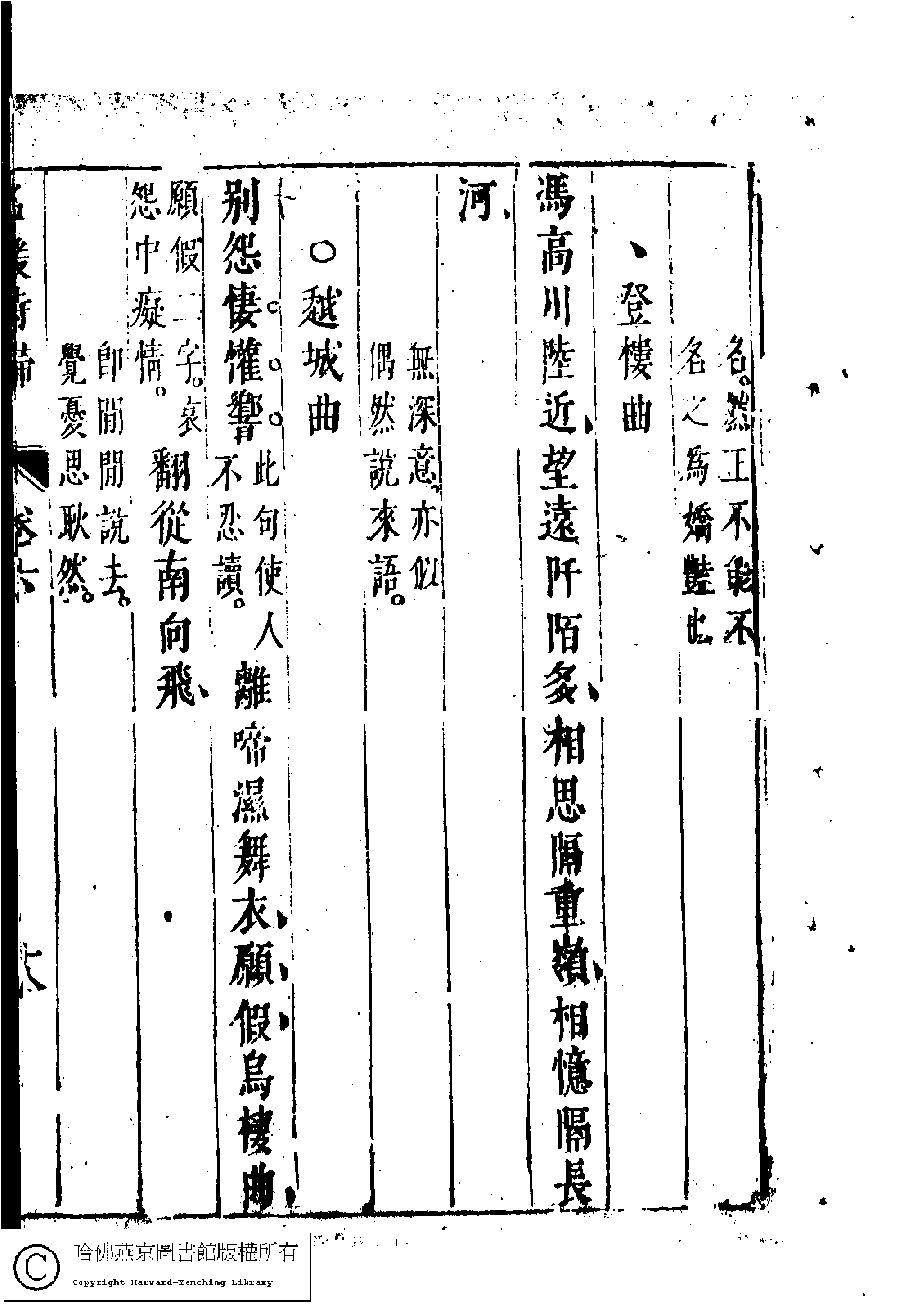 名。然正不能不
名之爲嬌豔也
、登樓曲
馮高川陸近、望遠阡陌多、相思隔重嶺、相憶隔長
河、
無深意、亦似
偶然說來語。
○越城曲
別怨悽懽響
此句使人
不忍讀。
離啼濕舞衣、願假烏棲曲、
願假二字。哀
怨中癡情。
翻從南向飛、
即閒閒說去。
覺憂思耿然。
卷六
哈佛燕京圖書館版權所有
Copyright Harvard-Yenching Library